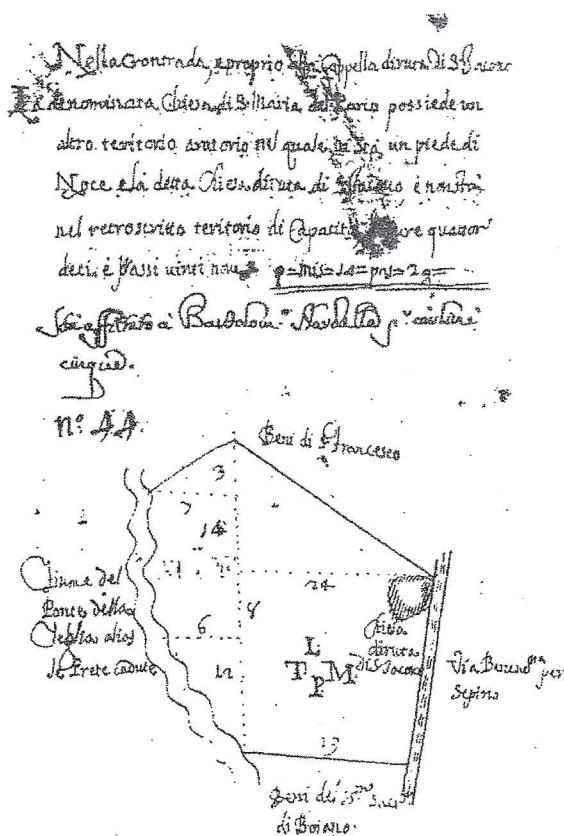 Nella Contrada, e proprio alla Cappella diruta di S. Iacono
La denominata Chiesa di S. Maria del Parco possiede un
altro teritorio aratorio nel quale vi sta un piede di
Noce e la detta Chiesa diruta di è nostra
nel retroscritto teritorio di Capacità quattor
deci, è passi vinti nove
Sta affittato à Bartolom.º Nardella p. carlini
cinque.
D
nº. 44.
Beni di S. Francesco
3
7
14
24
8
6
12
19
Fiume del
Ponte della
alias
le Prete cadute
Chiesa
diruta
di S. Iacono
L
T M
P
Via per
Sepino
Beni dei
di Boiano.